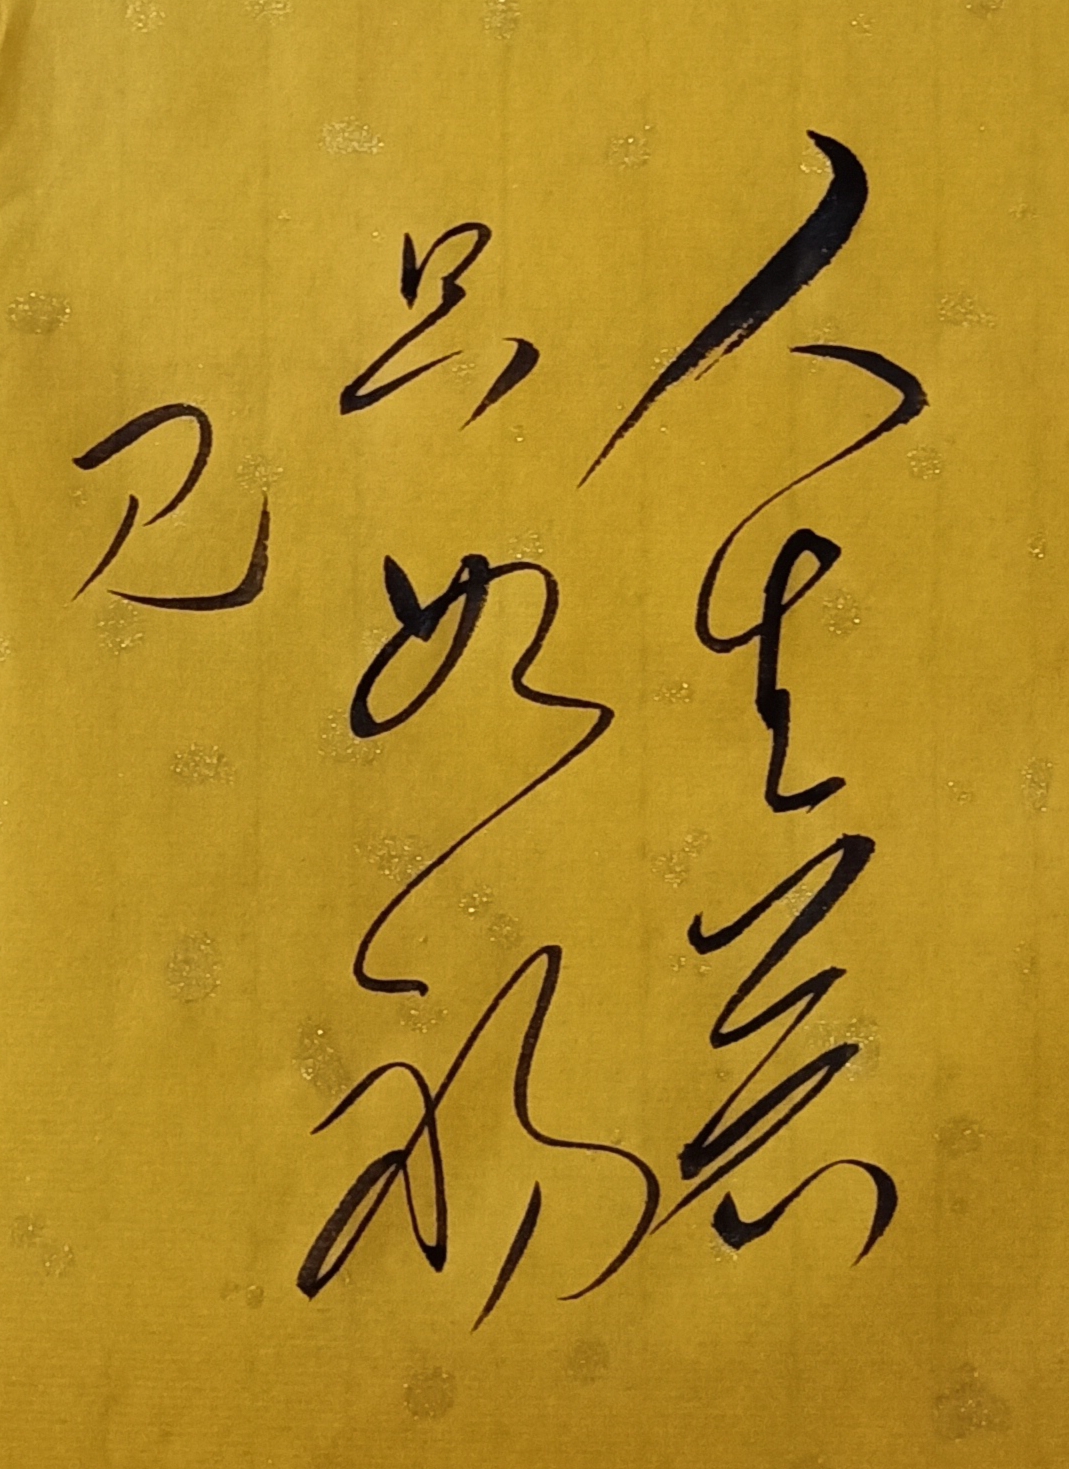 人生若
只如初
见